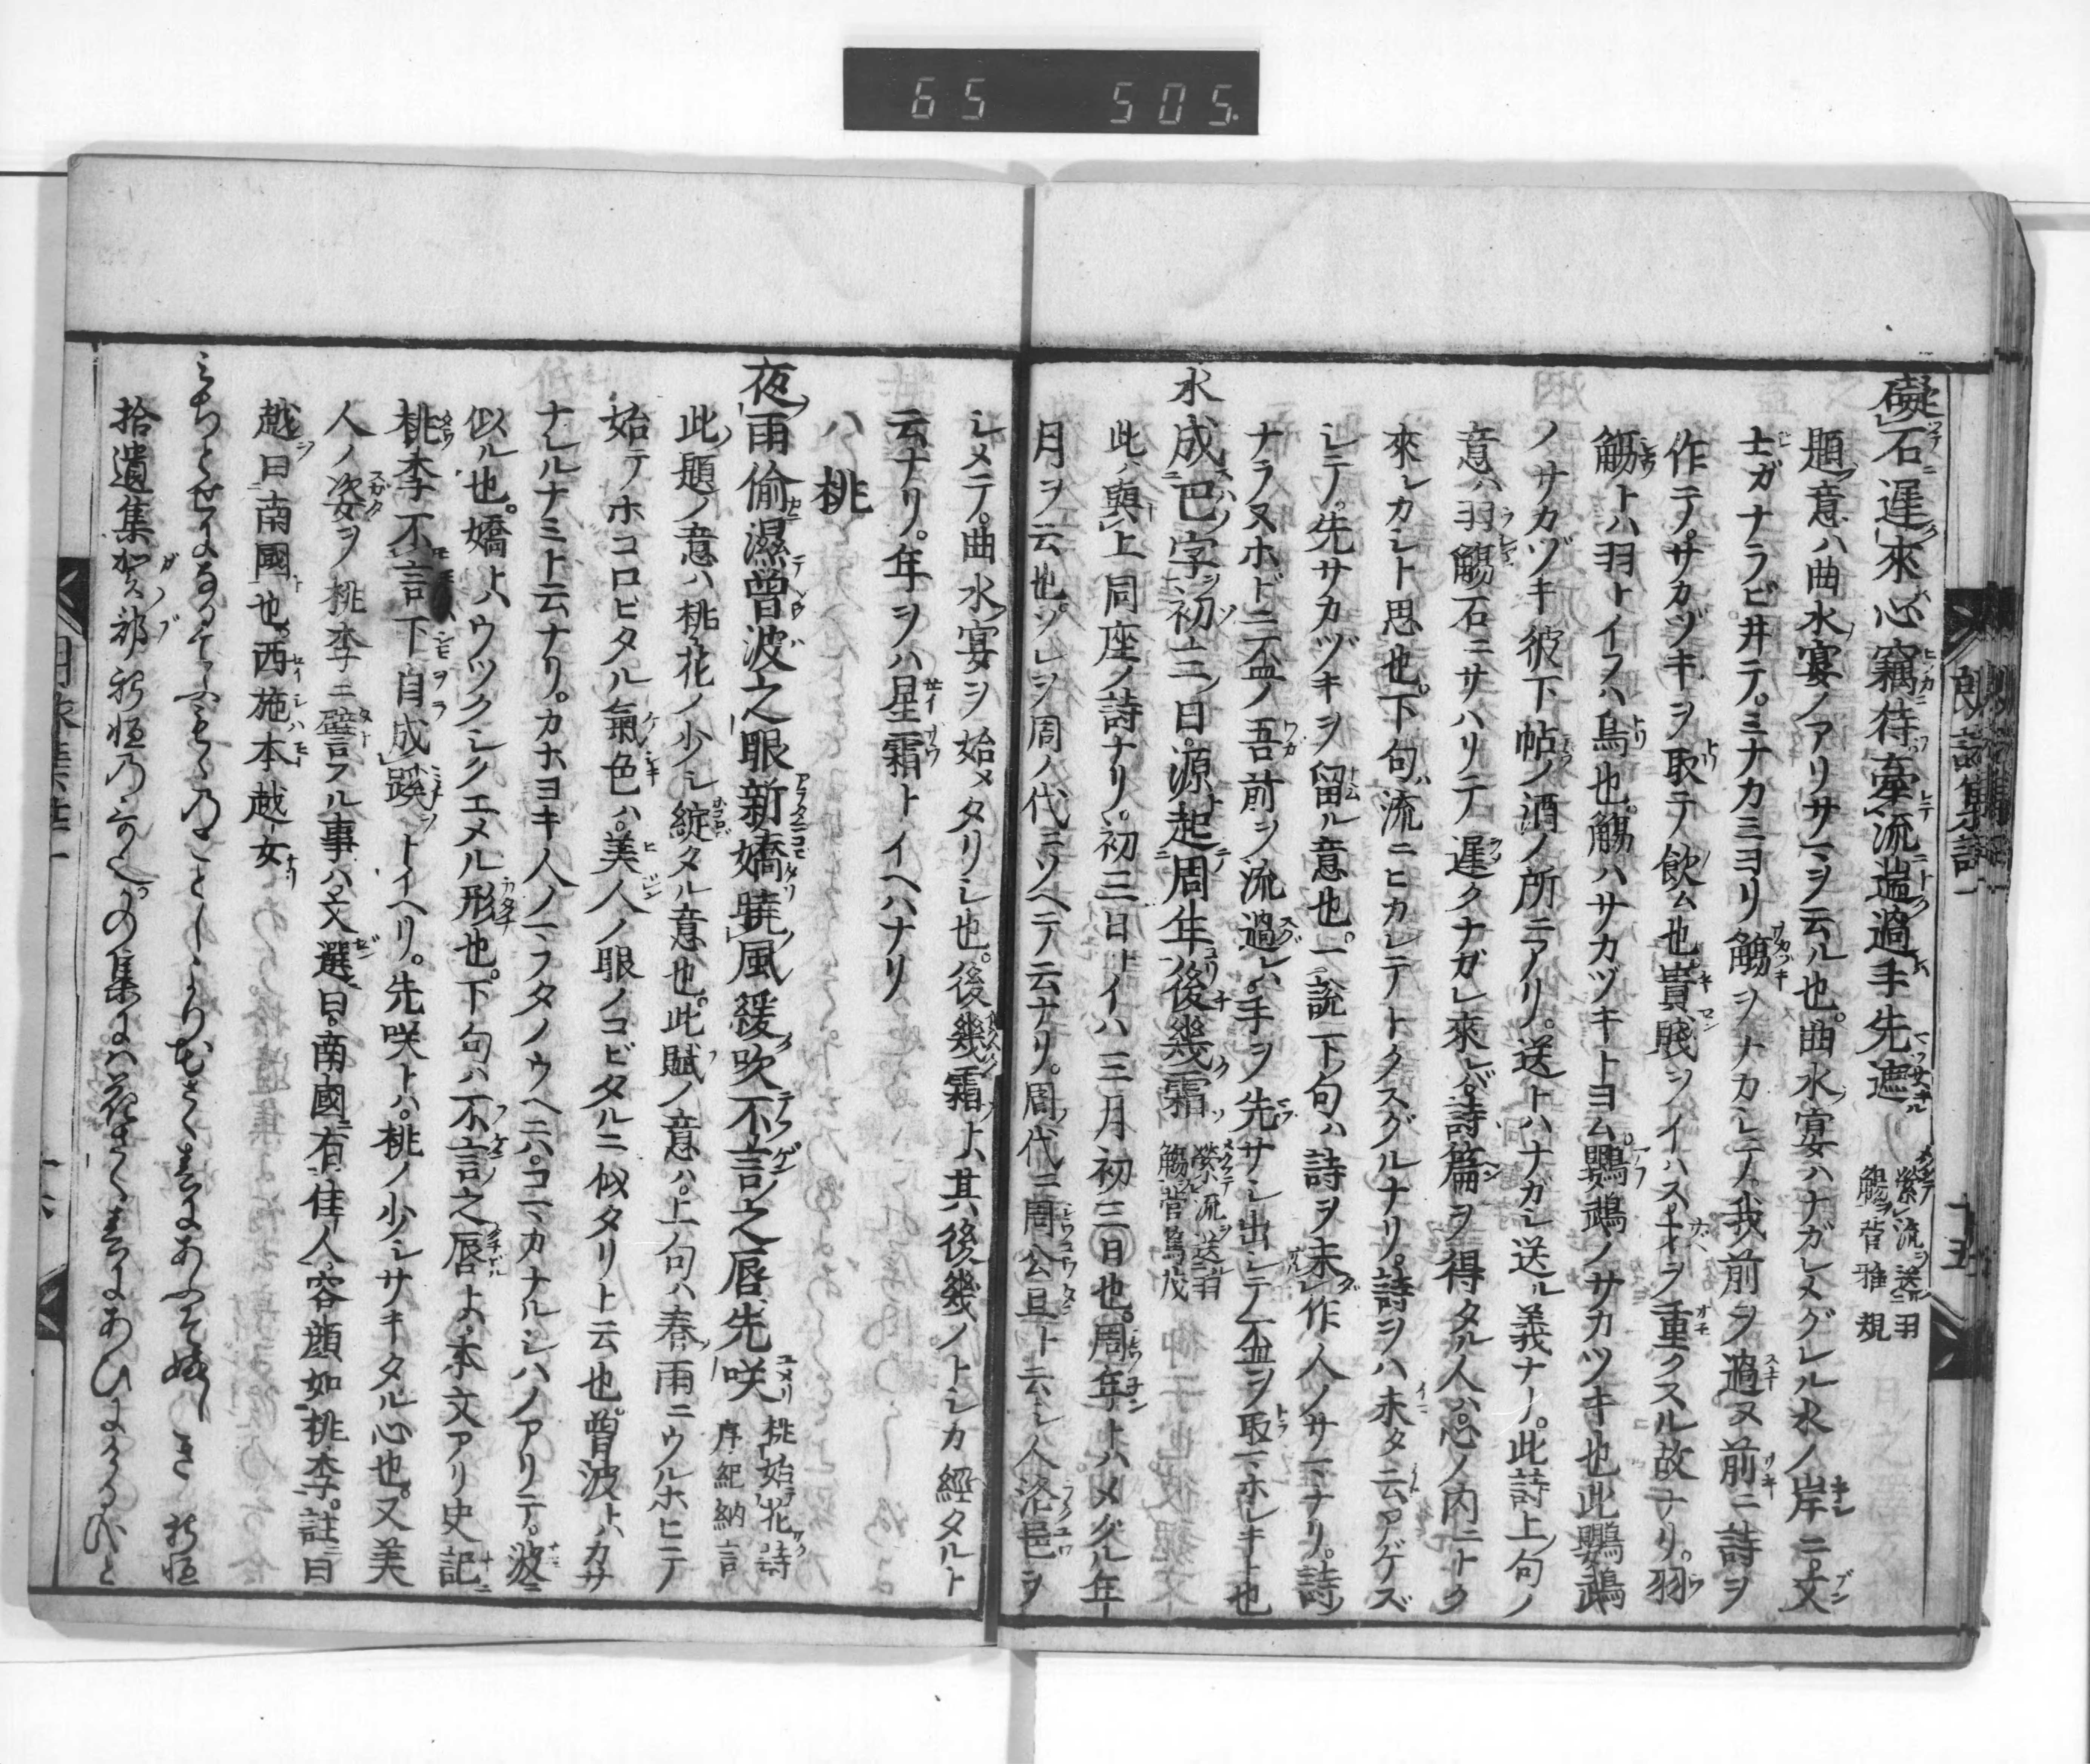 65 505.
礙石遅來心竊待牽流遄過手先遮 縈流送羽觴 菅雅規
題意ハ曲水宴ノアリサマヲ云ル也。曲水宴ハナガレメグレル水ノ岸ニ。文
士ガナラビ井テ。ミナカミヨリ觴ヲナカシテ。我前ヲ過ヌ前ニ詩ヲ
作テ。サカヅキヲ取テ飲ム也。貴賤ヲイハス。才ヲ重クスル故ナリ。羽
觴トハ羽トイフハ鳥也。觴ハサカヅキトヨム。鸚鵡ノサカツキ也此鸚鵡
ノサカヅキ彼下帖ノ酒ノ所ニアリ。送トハナガシ送ル義ナリ。此詩上句ノ
意ハ羽觴石ニサハリテ遅クナガレ來レバ。詩篇ヲ得タル人ハ。心ノ内ニトク
來レカシト思也。下句ハ流ニヒカレテトクスグルナリ。詩ヲハ未タ云アゲズ
シテ。先サカヅキヲ留ル意也。一説下句ハ詩ヲ未作人ノサマナリ。詩
ナラヌホドニ盃ノ吾前ヲ流過レハ。手ヲ先サシ出シテ盃ヲ取マホシキト也
水成巴字初三日源起周年後幾霜 縈流送羽觴 菅篤茂
此ハ與上同座ノ詩ナリ。初三日トイハ三月初三日也。周年トハメグル年
月ヲ云也。ソレヲ周ノ代ニソヘテ云ナリ。周代ニ周公旦ト云シ人洛邑ヲ
シメテ。曲水宴ヲ始メタリシ也。後幾霜トハ其後幾ノトシカ經タルト
云ナリ。年ヲハ星霜トイヘハナリ
ハ 桃
夜雨偷濕曾波之眼新嬌曉風緩吹不言之唇先咲 桃始花詩序 紀納言
此題ノ意ハ桃花ノ少シ綻タル意也。此賦ノ意ハ。上句ハ春雨ニウルホヒテ
始テホコロビタル氣色ハ。美人ノ眼ノコビタルニ似タリト云也。曾波トハカサ
ナレルナミト云ナリ。カホヨキ人ノマフタノウヘニハ。コマカナルシハノアリテ。波ニ
似ル也。嬌トハウツクシクエメル形也。下句ハ不言之唇トハ本文アリ史記
桃李不言下自成蹊トイヘリ。先咲トハ。桃ノ少シサキタル心也。又美
人ノ姿ヲ桃李ニ譬フル事ハ。文選曰。南國有佳人。容顔如桃李。註曰
越曰南國也。西施本越女
みちとせになるてふもゝのことしより花さく春にあふそ嬉しき 躬恒
拾遺集賀部躬恒乃哥也。の集には花さく春にあひにけるかと
朗詠集註
十五